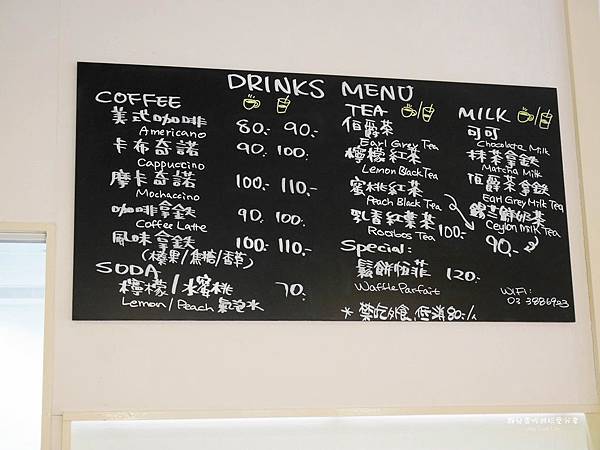 DRINKS MENU
COFFEE
美式咖啡 80.- 90.-
Americano
卡布奇諾 90. 100.
Cappuccino
摩卡奇諾 100.- 110.-
Mochaccino
咖啡拿鉄 90. 100.
Coffee Latte
風味拿鉄 100.- 110.-
(榛果/焦糖/香草)
SODA
檸檬/蜜桃 70.-
Lemon/Peach 氣泡水
TEA /
伯爵茶
Earl Grey Tea
檸檬紅茶
Lemon Black Tea
蜜桃紅茶
Peach Black Tea
乳香紅葉茶 100.-
Rooibos Tea
Special:
鬆餅怕菲 120.-
Waffle Parfait
* 禁吃外食, 低消80.-/人
MILK /
可可
Chocolate Milk
抹茶拿鉄
Matcha Milk
伯爵茶拿鉄
Earl Grey Milk Tea
錫兰鮮奶茶
Ceylon Milk Tea
90.-
WIFI:
03 3886923